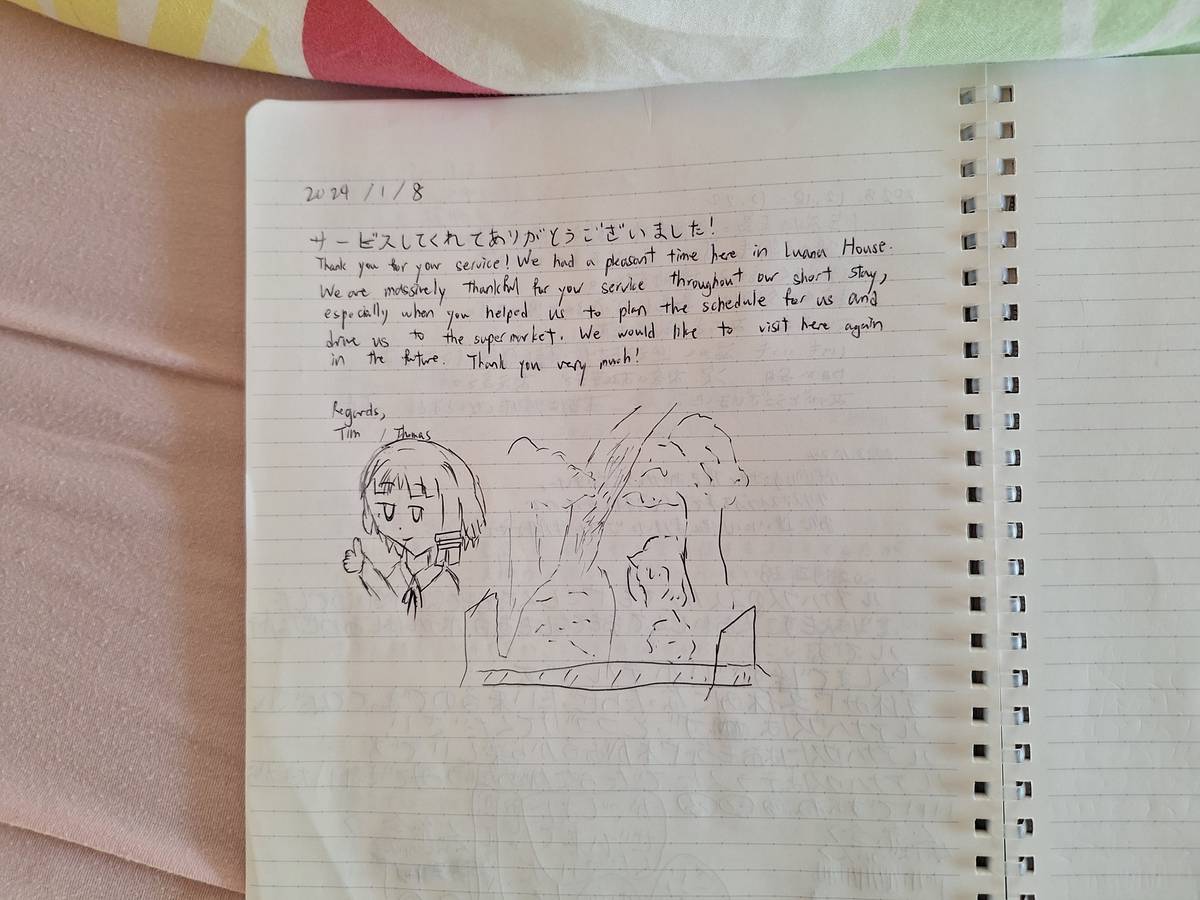 2024 / 1 / 8
サービスしてくれてありがとうございました!
Thank you for your service! We had a pleasant time here in Luana House.
We are massively thankful for your service throughout our short stay,
especially when you helped us to plan the schedule for us and
drive us to the supermarket. We would like to visit here again
in the future. Thank you very much!
Regards,
Tim / Thomas